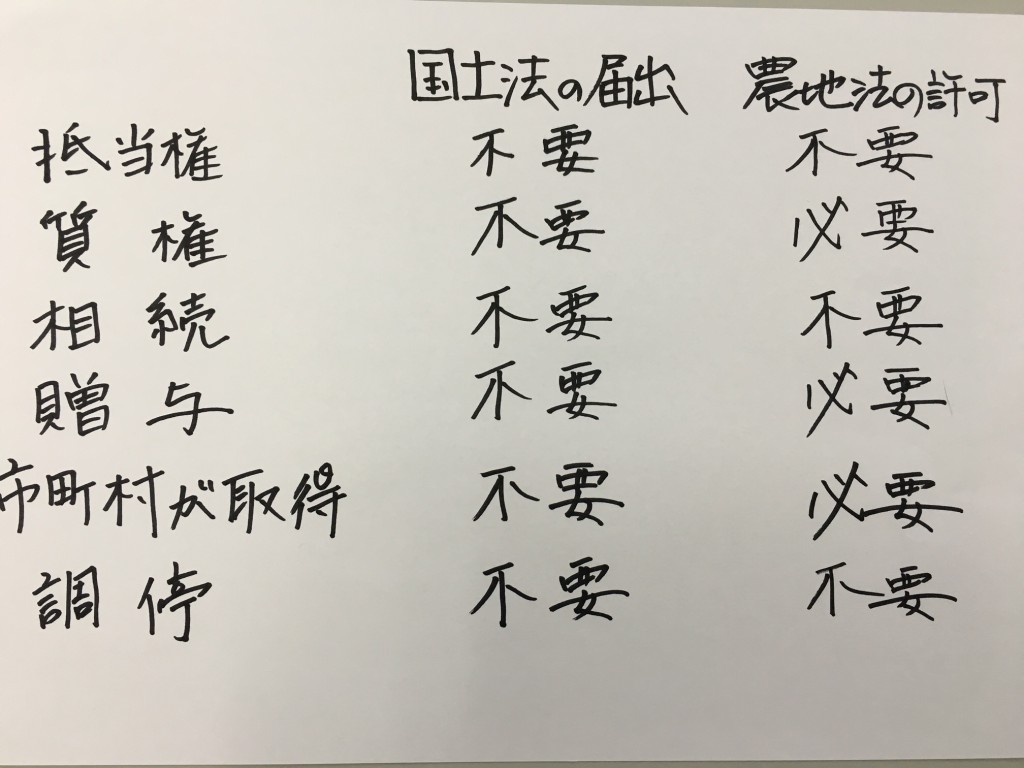 国土法の届出 農地法の許可
抵当権 不要 不要
質権 不要 必要
相続 不要 不要
贈与 不要 必要
市町村が取得 不要 必要
調停 不要 不要